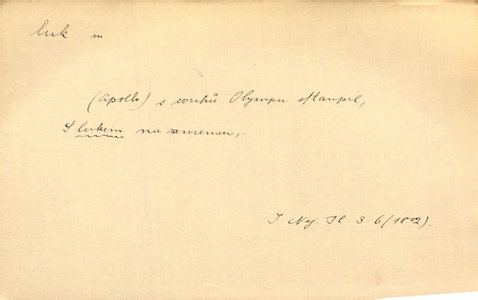 luk m
(Apollo) s wrchů Olympu sstaupil,
S lukem na ramenau,
J. Nej. Il. 3. 6 (1802).